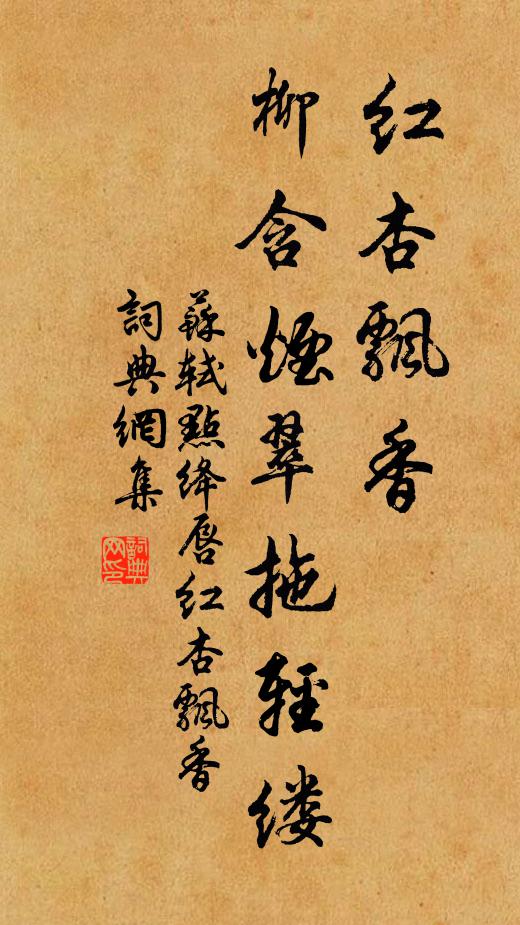 红杏飘香
柳含烟翠拖轻缕
蘇軾點绛唇红杏飘香
詞典網集
詞典网印